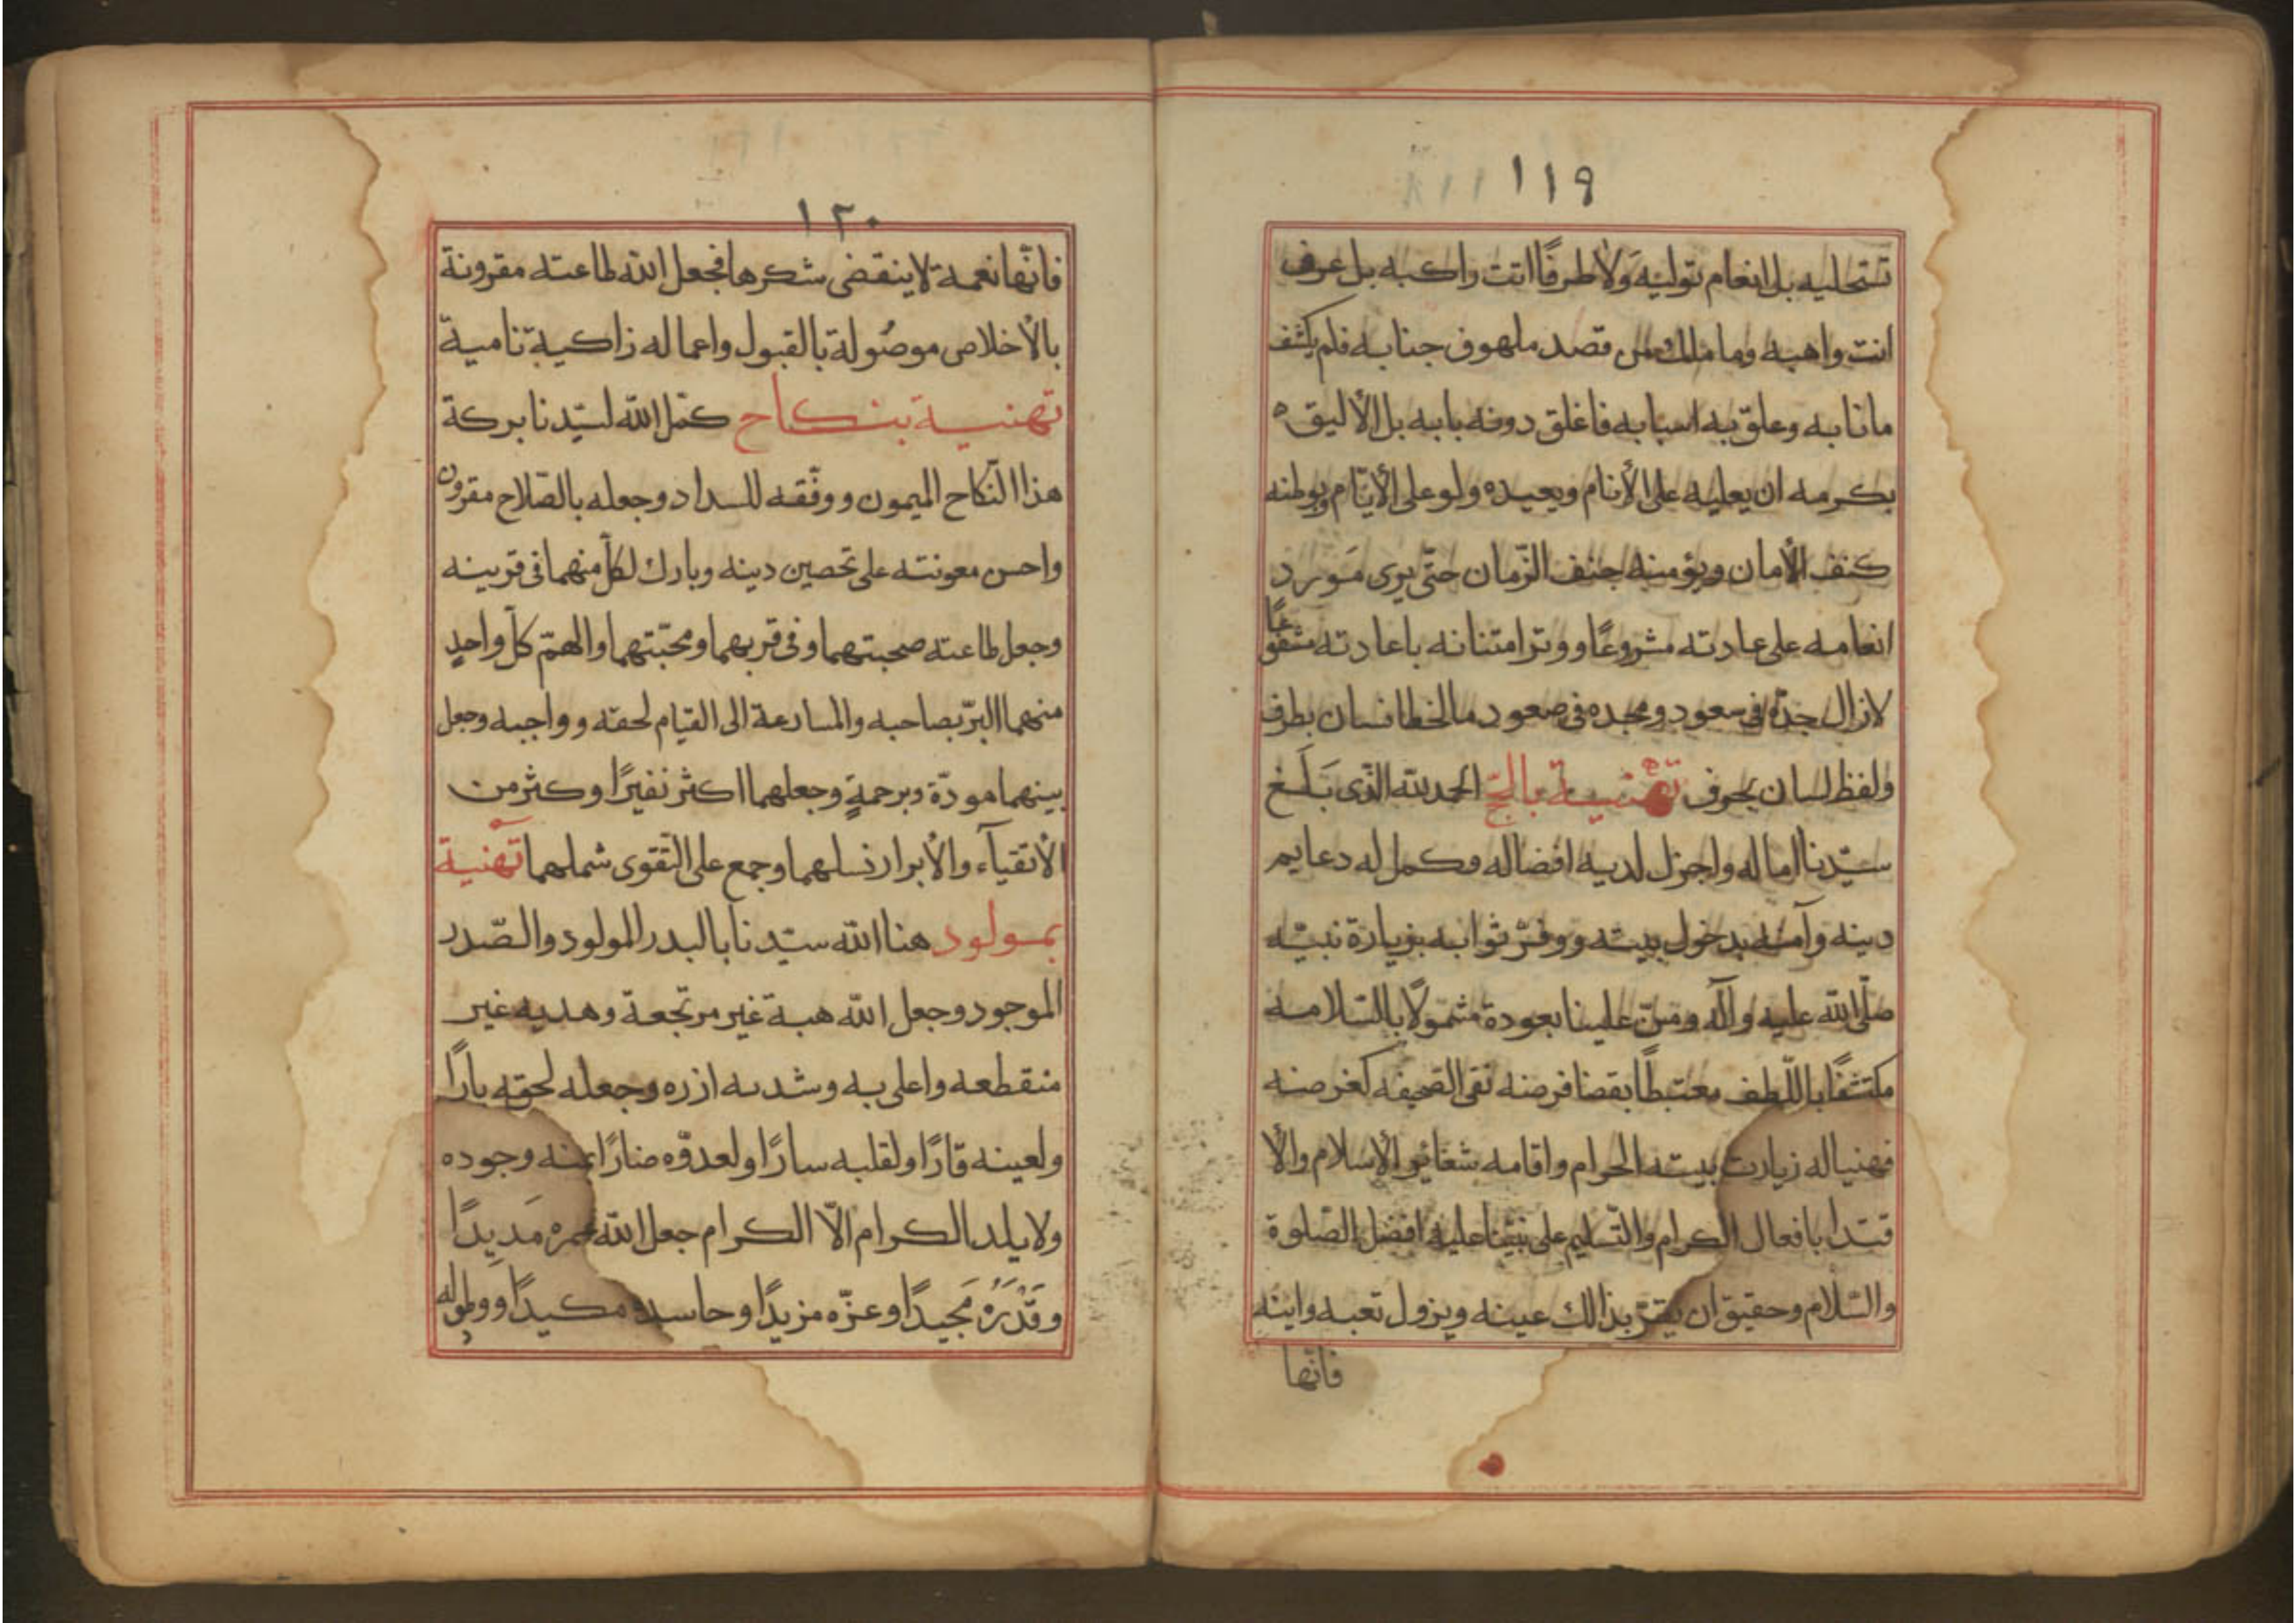 ١١٩
تستحليه بل انعام توليه وَلا طرفًا انت راكبه بل عرف
انت واهبه وما ملك من قصد ملهوف جنابه فلم يكشف
مانابه وعلّق به اسبابه فاغلق دونه بابه بل الأليق
بكرمه ان يعليه على الأنام ويعيده ولو على الأيّام ويوطنه
كنف الأمان ويؤمنه جنف الزّمان حتّى يرى مَورد
انعامه على عادته مشروعًا ووتر امتنانه باعادته مشفوعًا
لازال جدّه فى سعود ومجده فى صعود مالخطا نسان بطرف
ولفظ لسان بحرف تهنية بالحجّ الحمد لله الّذى بَلَغ
سيّدنا اماله واجزل لديه افضاله وكمل له دعايم
دينه وآمنه بدخول بيته ووفّر ثوابه بزيارة نبيّه
صلّى الله عليه وآله ومنّ علينا بعودة مشمولًا بالسّلامه
مكتنفًا باللّطف مغتبطًا بقضا فرضه نقى الصّحيفه كغرضه
فهنياله زيارت بيته الحرام واقامه شعائر الإسلام والأ
قتدا بافعال الكرام والتّسليم على نبيّنا عليه افضل الصّلوة
والسّلام وحقيق ان يقرّ بذالك عينه ويزول تعبه واينه
فانّها
١٢٠
فانّها نعمة لا ينقضى شكرها فجعل الله طاعته مقرونة
بالأخلاص موصُولة بالقبول واعماله زاكية نامية
تهنية بنكاح كمّل الله لسيّدنا بركة
هذا النّكاح الميمون ووفّقه للسداد وجعله بالصّلاح مقرون
واحسن معونته على تحصين دينه وبارك لكلّ منهما فى قرينه
وجعل طاعته صحبتهما وفى قربهما ومحبّتهما والهمّ كلّ واحدٍ
منهما البرّ بصاحبه والمسارعة الى القيام لحقه وواجبه وجعل
بينهما مودّة وبرحمةٍ وجعلهما اكثر نفيرًا وكثر من
الأتقيآء والأبرار نسلهما وجمع على التّقوى شملهما تهنية
بمولود هنا الله سيّدنا بالبدر المولود والصّدر
الموجود وجعل الله هبة غير مرتجعة وهديه غير
منقطعه واعلى به وشد به ازره وجعله لحقه بارًا
ولعينه قارًا ولقلبه سارًا ولعدوّه ضارًا يمنه وجوده
ولا يلد الكرام الّا الكرام جعل الله عمره مَديدًا
وقَدْرَهُ مَجيدًا وعزّه مزيدًا وحاسده مكيدًا ووطوله